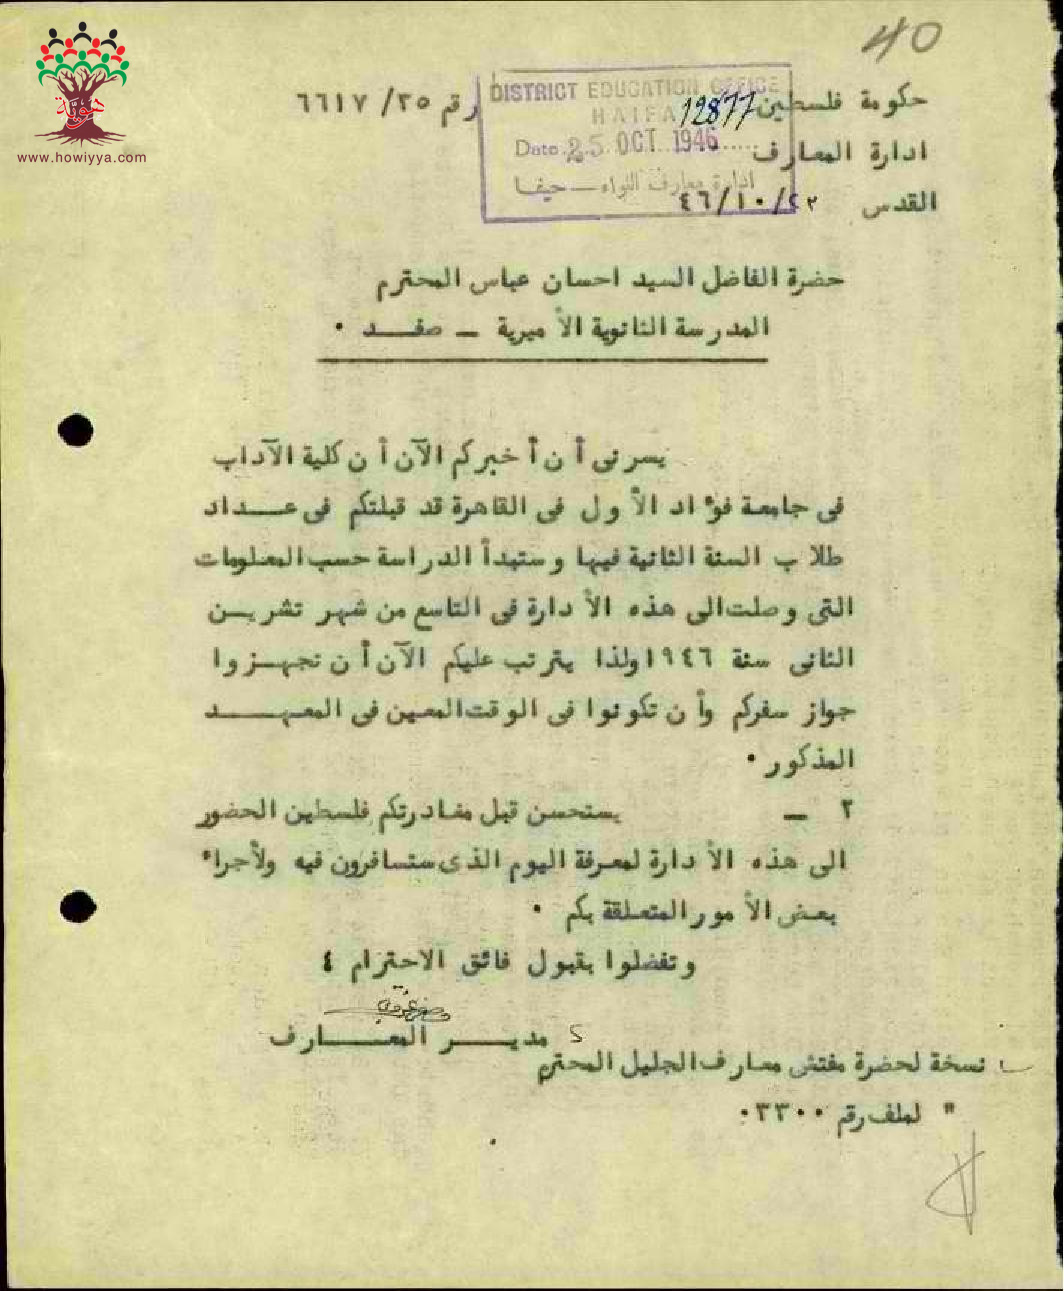 40
هوية
www.howiyya.com
حكومة فلسطين رقم ٢٥/ ٦٦١٧
DISTRICT EDUCATION OFFICE
HAIFA 12877
ادارة المعارف
Date 25 OCT 1946
ادارة معارف اللواء — حيفا
القدس ٤٦/١٠/٢٢
حضرة الفاضل السيد احسان عباس المحترم
المدرسة الثانوية الأميرية - صفد ٠
يسرنى أن أخبركم الآن أن كلية الآداب
فى جامعة فؤاد الأول فى القاهرة قد قبلتكم فى عداد
طلاب السنة الثانية فيها وستبدأ الدراسة حسب المعلومات
التى وصلت الى هذه الأدارة فى التاسع من شهر تشرين
الثانى سنة ١٩٤٦ ولذا يترتب عليكم الآن أن تجهزوا
جواز سفركم وأن تكونوا فى الوقت المعين فى المعهد
المذكور ٠
٢ - يستحسن قبل مغادرتكم فلسطين الحضور
الى هذه الأدارة لمعرفة اليوم الذى ستسافرون فيه ولأجراء
بعض الأمور المتعلقة بكم ٠
وتفضلوا بقبول فائق الاحترام ٤
مدير المعارف
نسخة لحضرة مفتش معارف الجليل المحترم
" لملف رقم ٣٣٠٠ ٠